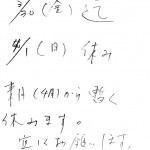 3/30(金)迄
4/1(日)休み
朝(4月)から暫く
休みます。
宜しくお願いします。